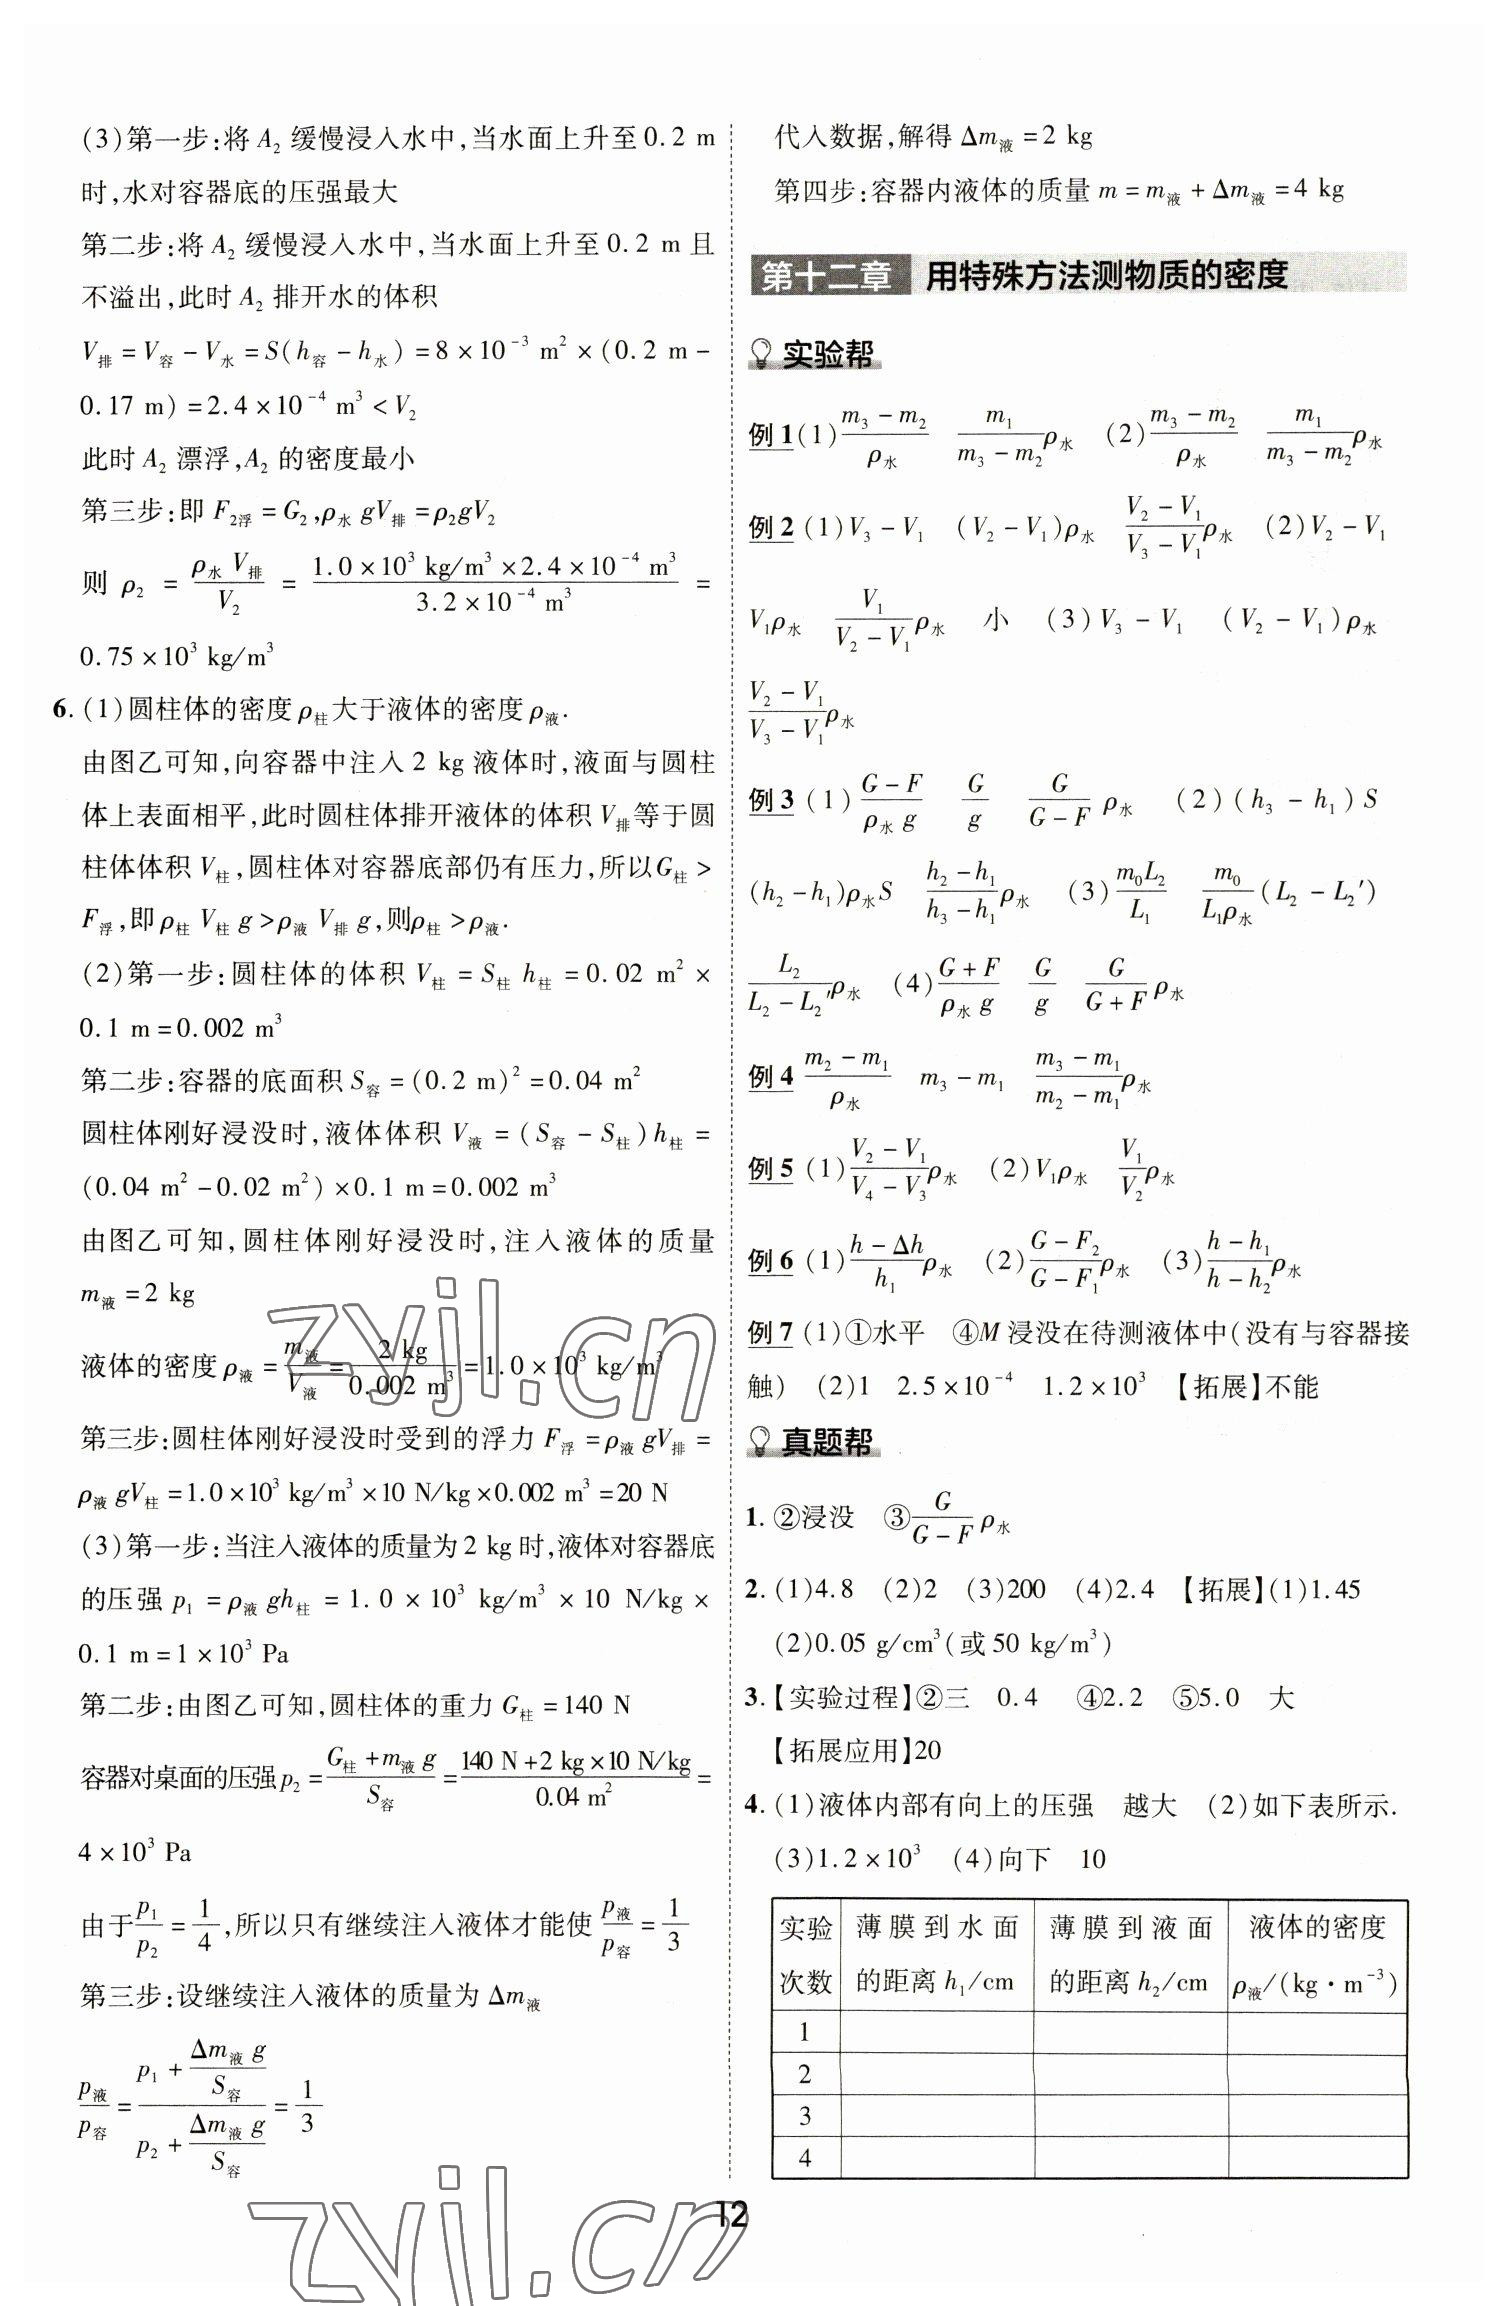 (3)第一步:将 A₂ 缓慢浸入水中,当水面上升至0.2 m
时,水对容器底的压强最大
第二步:将 A₂ 缓慢浸入水中,当水面上升至0.2 m 且
不溢出,此时 A₂ 排开水的体积
V排 = V容 - V水 = S(h容 - h水) = 8×10⁻³ m² ×(0.2 m -
0.17 m) = 2.4×10⁻⁴ m³ < V₂
此时 A₂ 漂浮,A₂ 的密度最小
第三步:即 F₂浮 = G₂,ρ水 gV排 = ρ₂gV₂
则 ρ₂ = (ρ水 V排)/V₂ = (1.0×10³ kg/m³ ×2.4×10⁻⁴ m³)/(3.2×10⁻⁴ m³) =
0.75×10³ kg/m³
6. (1)圆柱体的密度 ρ柱大于液体的密度 ρ液.
由图乙可知,向容器中注入2 kg 液体时,液面与圆柱
体上表面相平,此时圆柱体排开液体的体积 V排等于圆
柱体体积 V柱,圆柱体对容器底部仍有压力,所以G柱 >
F浮,即 ρ柱 V柱 g > ρ液 V排 g,则ρ柱 > ρ液.
(2)第一步:圆柱体的体积 V柱 = S柱 h柱 = 0.02 m² ×
0.1 m = 0.002 m³
第二步:容器的底面积 S容 = (0.2 m)² = 0.04 m²
圆柱体刚好浸没时,液体体积 V液 = (S容 - S柱)h柱 =
(0.04 m² - 0.02 m²) ×0.1 m = 0.002 m³
由图乙可知,圆柱体刚好浸没时,注入液体的质量
m液 = 2 kg
液体的密度 ρ液 = m液/V液 = 2 kg/0.002 m³ = 1.0×10³ kg/m³
第三步:圆柱体刚好浸没时受到的浮力 F浮 = ρ液 gV排 =
ρ液 gV柱 = 1.0×10³ kg/m³ ×10 N/kg×0.002 m³ = 20 N
(3)第一步:当注入液体的质量为2 kg时,液体对容器底
的压强 p₁ = ρ液 gh柱 = 1.0 × 10³ kg/m³ × 10 N/kg ×
0.1 m = 1×10³ Pa
第二步:由图乙可知,圆柱体的重力 G柱 = 140 N
容器对桌面的压强 p₂ = (G柱 + m液 g)/S容 = (140 N + 2 kg×10 N/kg)/(0.04 m²) =
4×10³ Pa
由于 p₁/p₂ = 1/4,所以只有继续注入液体才能使 p液/p容 = 1/3
第三步:设继续注入液体的质量为 Δm液
p液/p容 = (p₁ + Δm液 g/S容)/(p₂ + Δm液 g/S容) = 1/3
代入数据,解得 Δm液 = 2 kg
第四步:容器内液体的质量 m = m液 + Δm液 = 4 kg
第十二章 用特殊方法测物质的密度
实验帮
例1 (1)(m₃ - m₂)/ρ水 m₁/(m₃ - m₂)ρ水 (2)(m₃ - m₂)/ρ水 m₁/(m₃ - m₂)ρ水
例2 (1)V₃ - V₁ (V₂ - V₁)ρ水 (V₂ - V₁)/(V₃ - V₁)ρ水 (2)V₂ - V₁
V₁ρ水 V₁/(V₂ - V₁)ρ水 小 (3)V₃ - V₁ (V₂ - V₁)ρ水
(V₂ - V₁)/(V₃ - V₁)ρ水
例3 (1)(G - F)/(ρ水 g) G/g G/(G - F) ρ水 (2)(h₃ - h₁)S
(h₂ - h₁)ρ水S (h₂ - h₁)/(h₃ - h₁)ρ水 (3)m₀L₂/L₁ m₀/(L₁ρ水)(L₂ - L₂′)
L₂/(L₂ - L₂′)ρ水 (4)(G + F)/(ρ水 g) G/g G/(G + F)ρ水
例4 (m₂ - m₁)/ρ水 m₃ - m₁ (m₃ - m₁)/(m₂ - m₁)ρ水
例5 (1)(V₂ - V₁)/(V₄ - V₃)ρ水 (2)V₁ρ水 V₁/V₂ρ水
例6 (1)(h - Δh)/h₁ρ水 (2)(G - F₂)/(G - F₁)ρ水 (3)(h - h₁)/(h - h₂)ρ水
例7 (1)①水平 ④M 浸没在待测液体中(没有与容器接
触) (2)1 2.5×10⁻⁴ 1.2×10³ 【拓展】不能
真题帮
1. ②浸没 ③G/(G - F) ρ水
2. (1)4.8 (2)2 (3)200 (4)2.4 【拓展】(1)1.45
(2)0.05 g/cm³(或50 kg/m³)
3.【实验过程】②三 0.4 ④2.2 ⑤5.0 大
【拓展应用】20
4. (1)液体内部有向上的压强 越大 (2)如下表所示.
(3)1.2×10³ (4)向下 10
实验次数 薄膜到水面的距离 h₁/cm 薄膜到液面的距离 h₂/cm 液体的密度 ρ液/(kg·m⁻³)
1
2
3
4
12
zyjl.cn
zyjl.cn